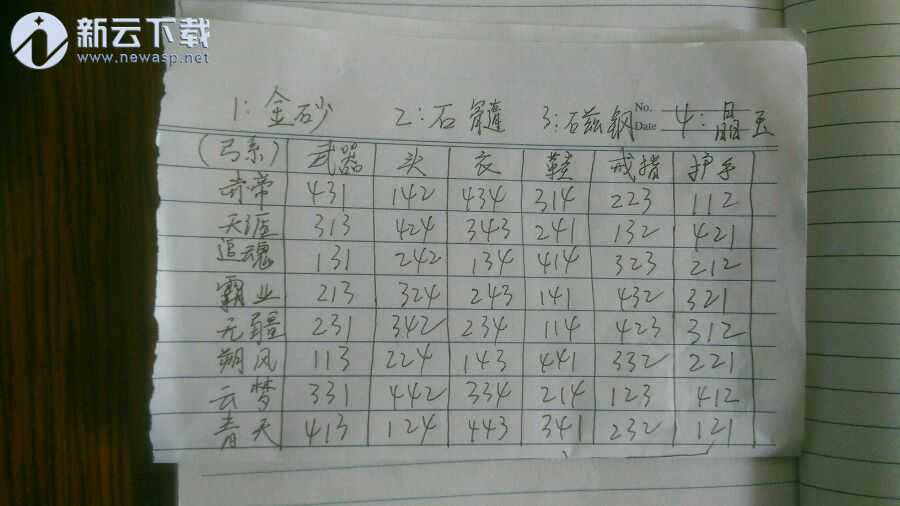 新云下载
www.newasp.net
1:金砂 2:石髓 3:磁钢 No. Date 4:晶玉
(弓系) 武器 头 衣 鞋 戒指 护手
431 142 434 314 223 112
天涯 313 424 343 241 132 421
追魂 131 242 134 414 323 212
霸业 213 324 243 141 432 321
无疆 231 342 234 114 423 312
朔风 113 224 143 441 332 221
云梦 331 442 334 214 123 412
青天 413 124 443 341 232 121